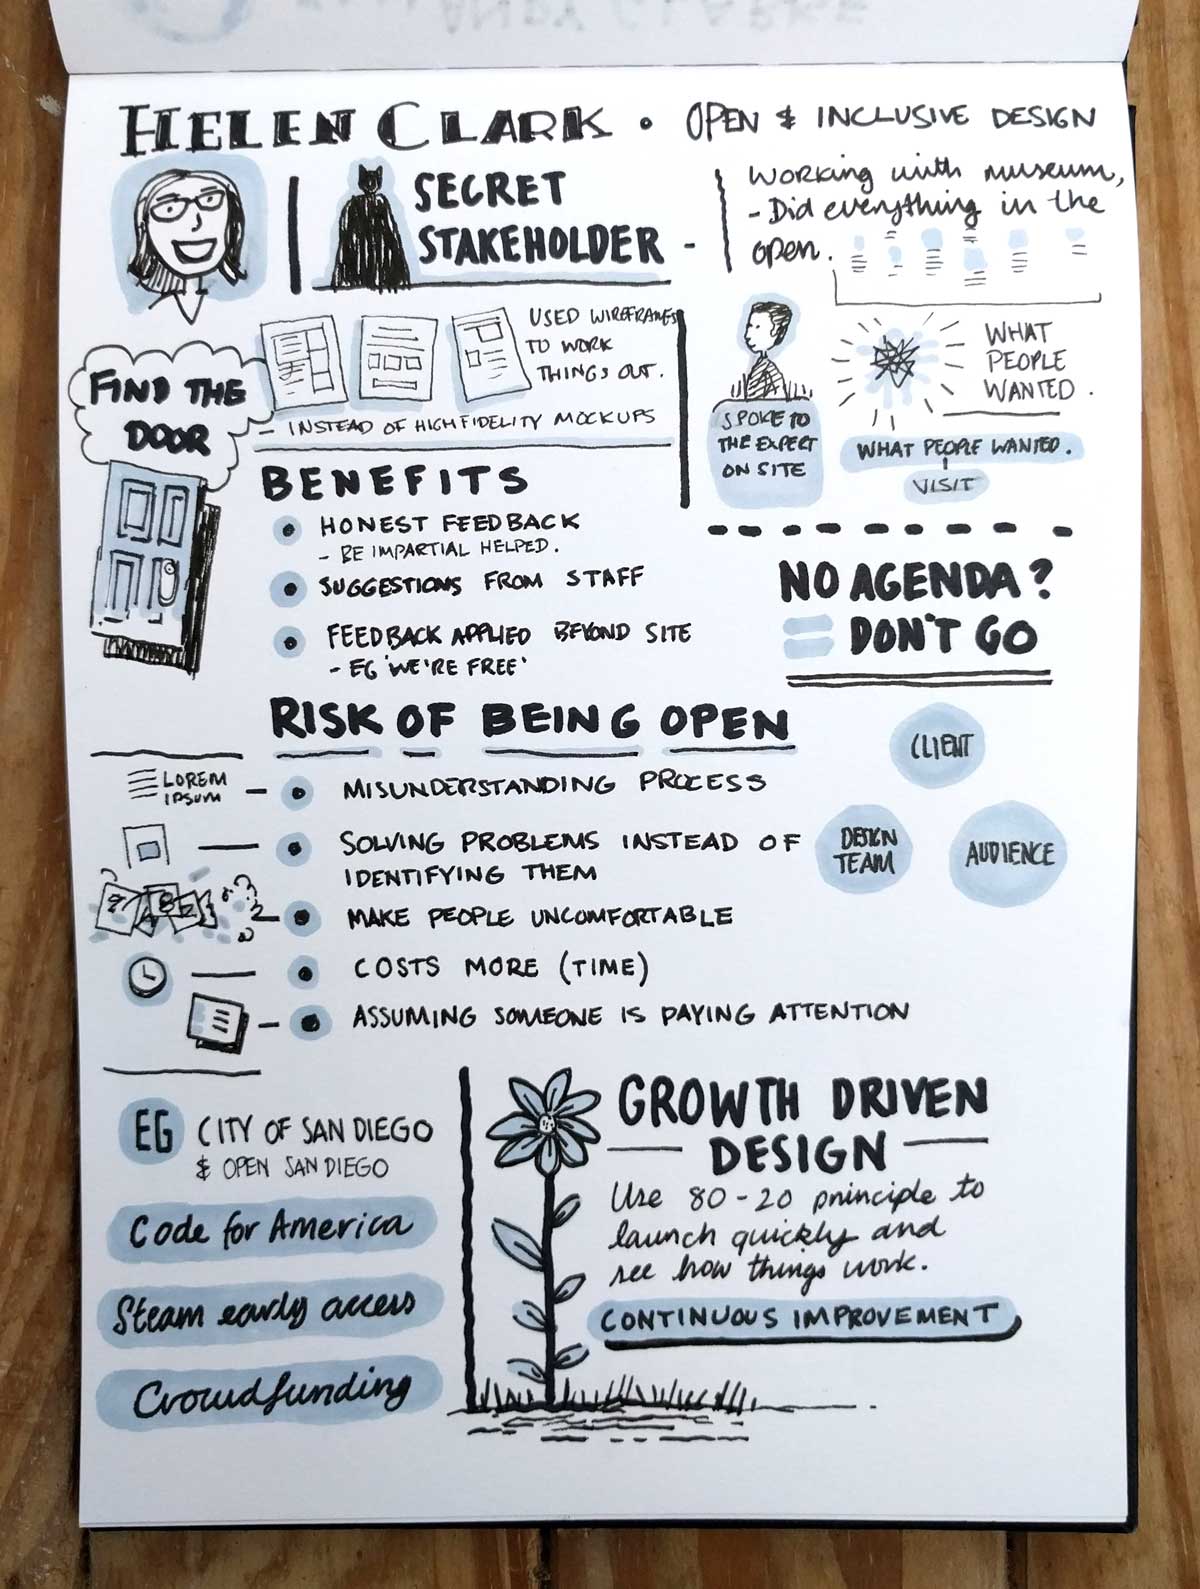 HELEN CLARK • OPEN & INCLUSIVE DESIGN
SECRET
STAKEHOLDER -
Working with museum,
- Did everything in the
open.
USED WIREFRAMES
TO WORK
THINGS OUT.
- INSTEAD OF HIGHFIDELITY MOCKUPS
FIND THE
DOOR
SPOKE TO
THE EXPERT
ON SITE
WHAT
PEOPLE
WANTED.
WHAT PEOPLE WANTED.
VISIT
BENEFITS
• HONEST FEEDBACK
- BE IMPARTIAL HELPED.
• SUGGESTIONS FROM STAFF
• FEEDBACK APPLIED BEYOND SITE
- EG 'WE'RE FREE'
NO AGENDA?
= DON'T GO
RISK OF BEING OPEN
LOREM
IPSUM
• MISUNDERSTANDING PROCESS
• SOLVING PROBLEMS INSTEAD OF
IDENTIFYING THEM
• MAKE PEOPLE UNCOMFORTABLE
• COSTS MORE (TIME)
• ASSUMING SOMEONE IS PAYING ATTENTION
CLIENT
DESIGN
TEAM
AUDIENCE
EG CITY OF SAN DIEGO
& OPEN SAN DIEGO
Code for America
Steam early access
Crowdfunding
GROWTH DRIVEN
DESIGN
Use 80-20 principle to
launch quickly and
see how things work.
CONTINUOUS IMPROVEMENT